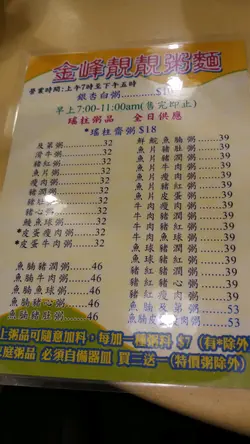 金峰靚靚粥麵
營業時間:上午7時至下午五時
銀杏白粥............$10
早上7:00-11:00am(售完即止)
瑤柱粥品 全日供應
*瑤柱齋粥$18
及第粥............32
滑牛粥............32
豬紅粥............32
魚片粥............32
瘦肉粥............32
豬潤粥............32
豬心粥............32
鯪魚球粥............32
*皮蛋瘦肉粥............32
*皮蛋牛肉粥............32
魚腩豬潤粥......46
魚腩牛肉粥......46
魚腩魚球粥......46
魚腩豬心粥......46
魚腩豬肚粥......46
鮮鯇魚腩粥............39
魚片豬肚粥............39
魚片豬潤粥............39
魚片瘦肉粥............39
魚片豬紅粥............39
魚片牛肉粥............39
牛肉瘦肉粥............39
牛肉豬潤粥............39
牛肉豬紅粥............39
牛肉魚球粥............39
魚球瘦肉粥............39
魚球豬潤粥............39
豬紅豬潤粥............39
豬紅瘦肉粥............39
魚腩及第粥............53
魚腩皮蛋粥............53
上粥品可隨意加料，每加一種粥料 $7 (有*除外
庭粥品 必須自備器皿 買三送一(特價粥除外)